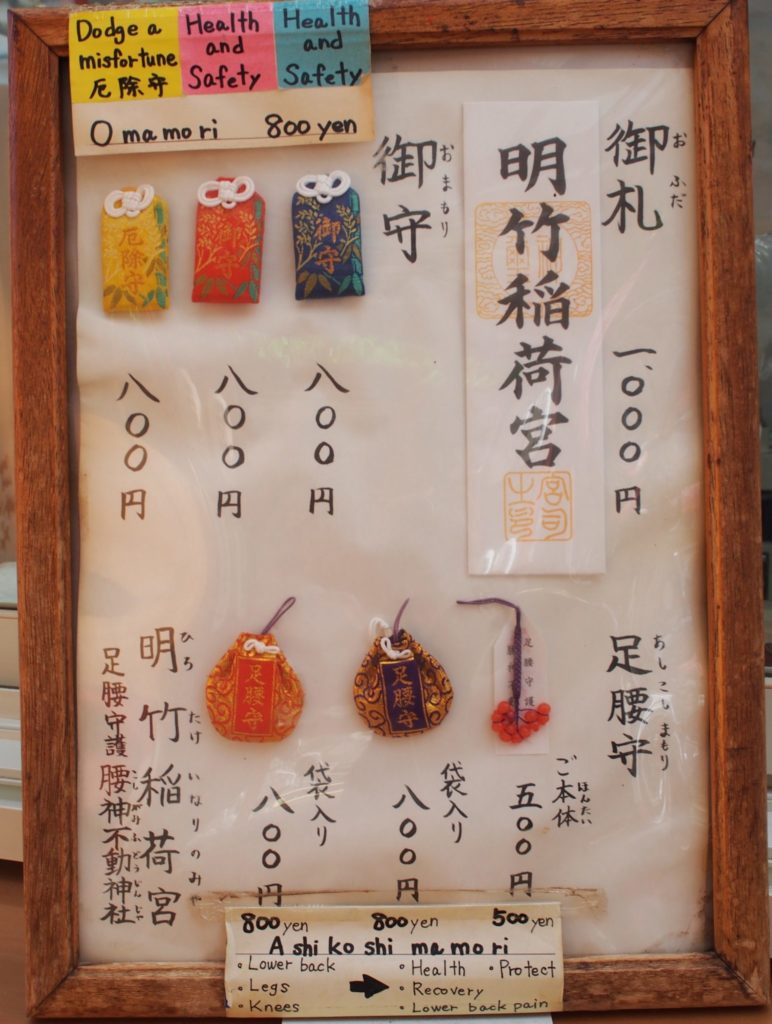 Dodge a
misfortune
厄除守
Health
and
Safety
Health
and
Safety
Omamori 800 yen
御札
おふだ
一、〇〇〇円
明竹稲荷宮
宮司之印
御守
おまもり
御守
御守
厄除守
八〇〇円
八〇〇円
八〇〇円
足腰守
あしこしまもり
ご本体
ほんたい
五〇〇円
足腰守護
足腰守
袋入り
八〇〇円
足腰守
袋入り
八〇〇円
明竹稲荷宮
ひろたけいなりのみや
足腰守護 腰神不動神社
こしがみふどうじんじゃ
800 yen 800 yen 500 yen
Ashikoshi mamori
・Lower back
・Legs
・Knees
➡
・Health ・Protect
・Recovery
・Lower back pain